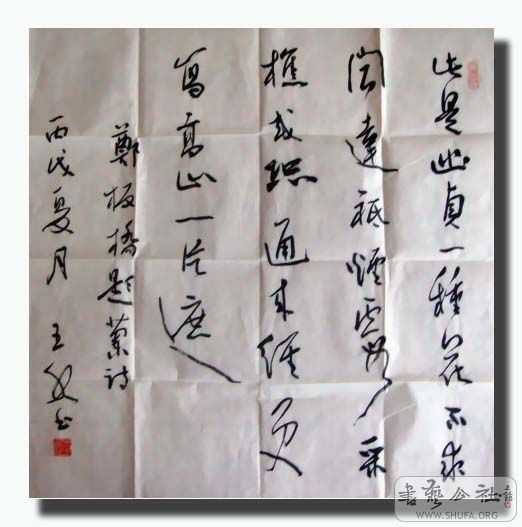 此是幽貞一種花不求
聞達祗煙霞采
樵或恐通來徑更
寫高山一片遮
鄭板橋題蘭詩
丙戌夏月 王書
書藝公社
WWW.SHUFA.ORG